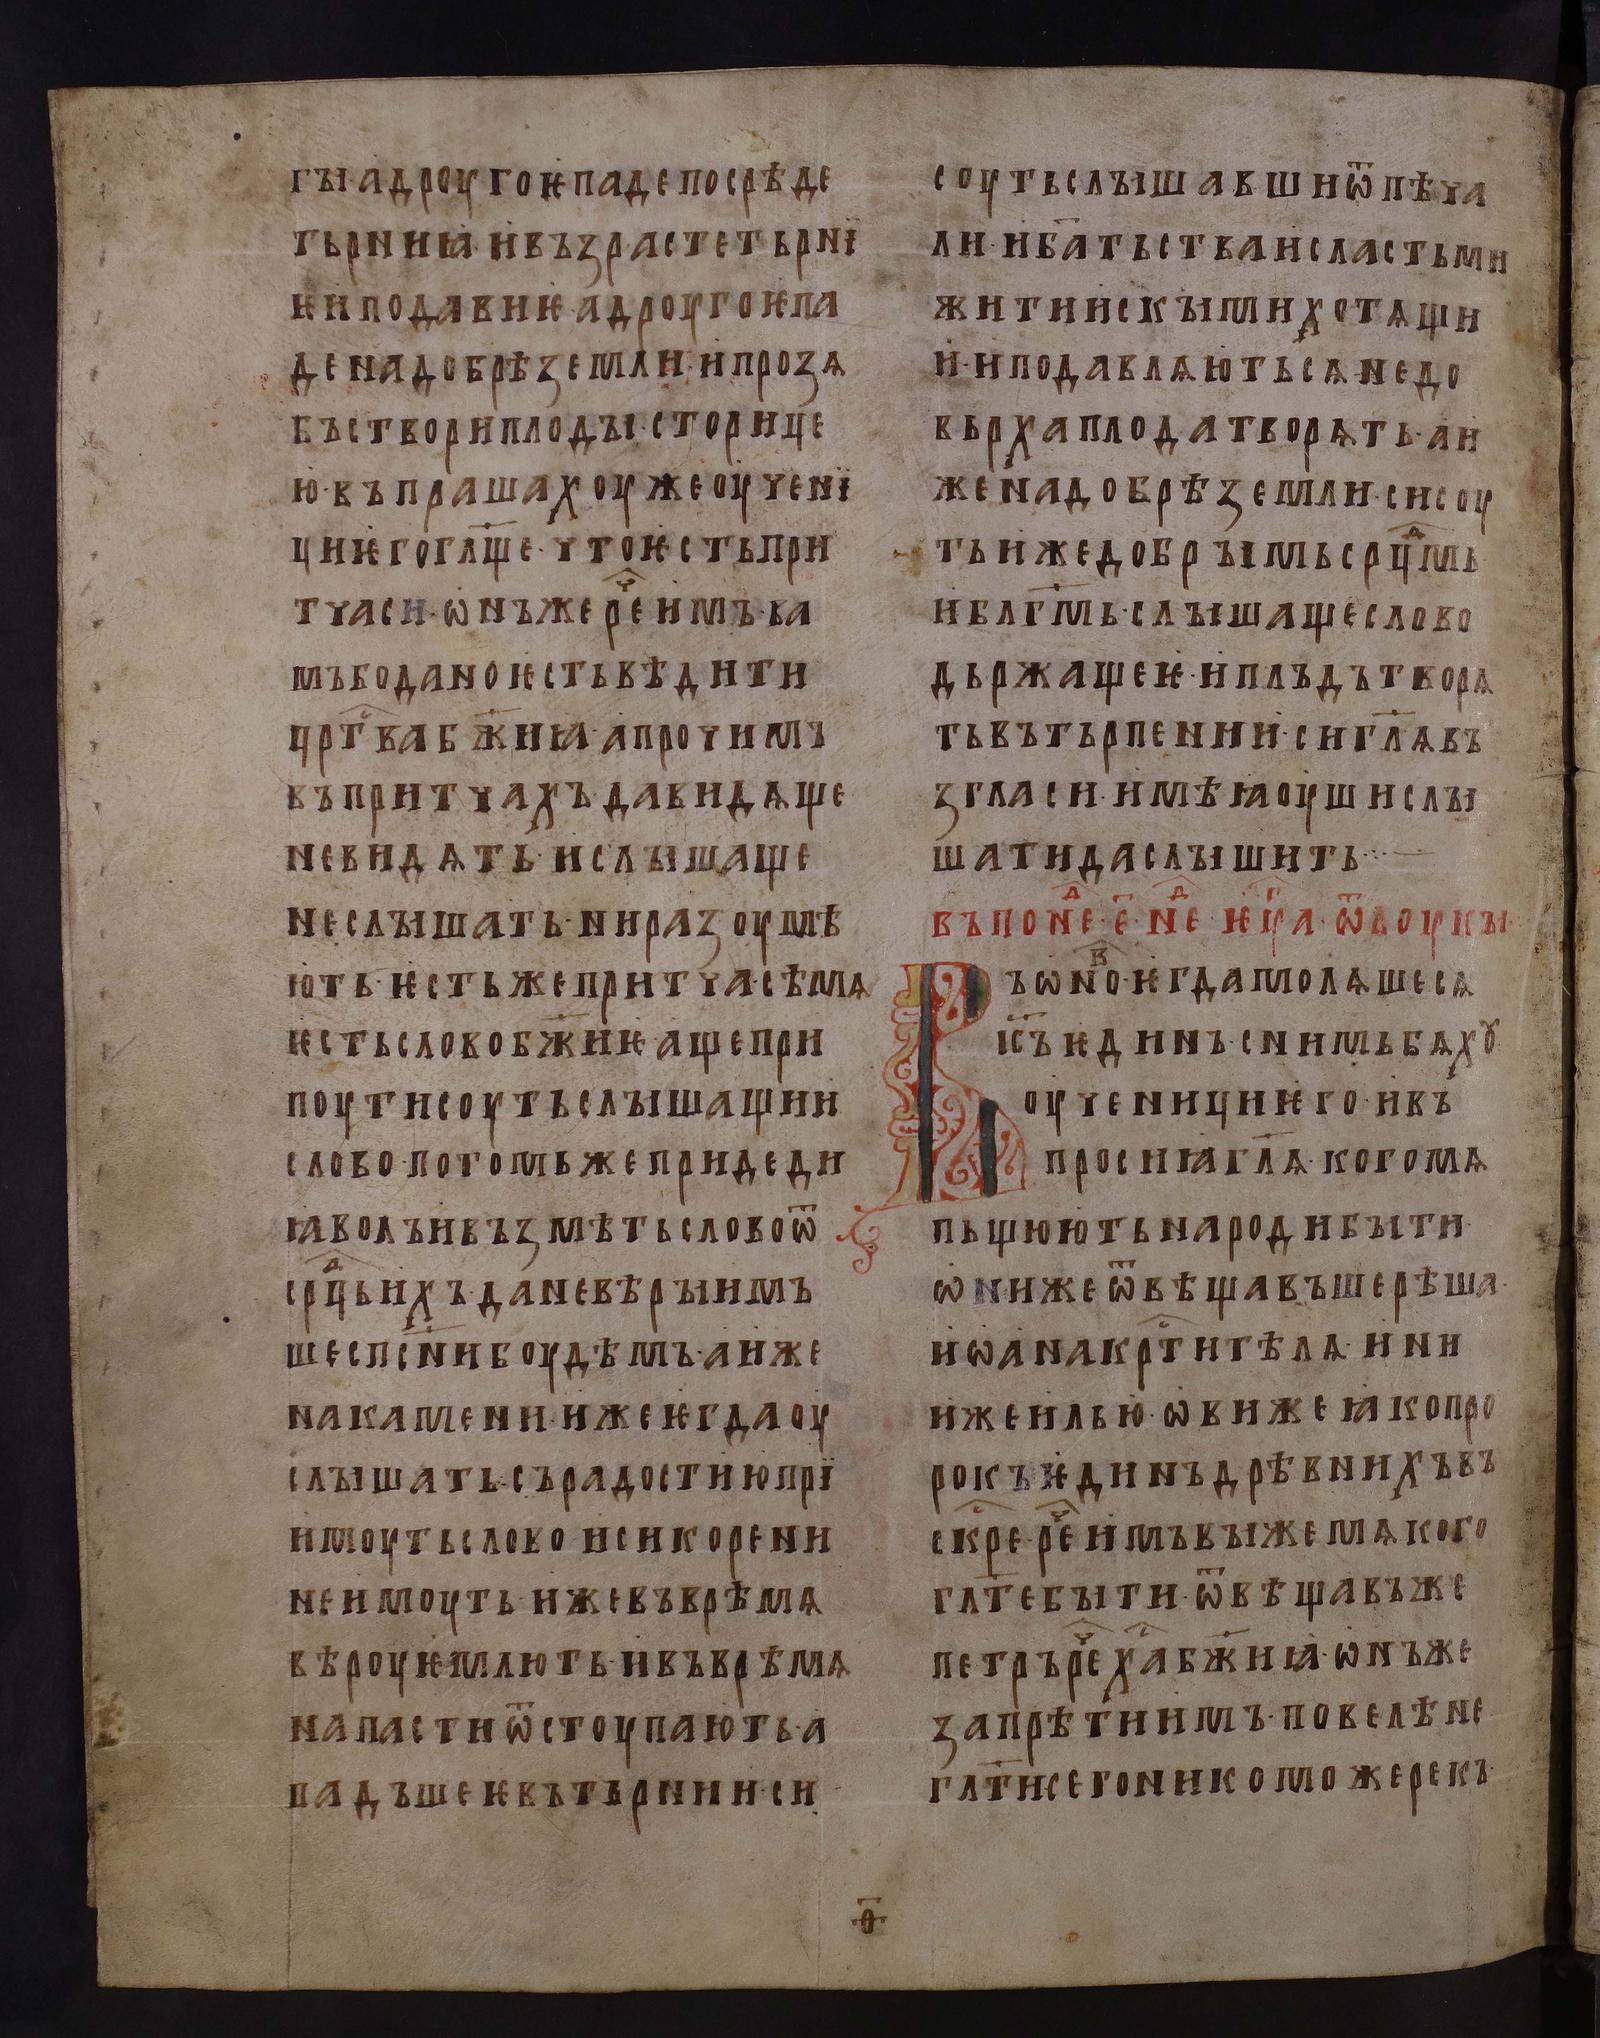 гъі адроугоѥпадепосрѣде
тьрнниꙗ· ивъзрастетьрнї
ѥиподавиѥ· адроугоѥпа
денадобрѣземли· ипрозѧ
бъстворнплодъі· сторице
ю· въпрашахоужеоученї
циѥгогл҃ще· чтоѥстьпри
тчаси· ѡнъжереⷱ҇имъ· ва
мъбоданоѥстьвѣдити
црⷭ҇твабж҃иꙗ· апрочимъ
въпритчахъ· давидѧще
невидѧть· ислъішаще
неслъішать· ниразоумѣ
ють· ѥстьжепритча· сѣмѧ
ѥстьсловобж҃иѥ· ащепри
поутисоутьслъішащии
слово· потомьжепридеди
ꙗволъивъзмѣтьсловоѿ
срⷣцьихъ· даневѣръіимъ
шеспс҃нибоудѣмъ· аиже
накамени· ижеѥгдаоу
слъішать· сърадостиюпрї
имоутьслово исикорени
неимоуть· ижевъврѣмѧ
вѣроуѥмлють· ивъврѣмѧ
напастиѿстоупають· а
падъшеѥвътьрнии· си
соутьслъішавшиѿпѣча
ли· иб҃атьстваисластьми
житиискъімихотѧщи
и· иподавлѧютьсѧ· недо
вьрхаплодатворѧть· аи
женадобрѣземли· сисоу
тьижедобръімьсрⷣцмь
иблг҃мь· слъішащеслово
дьржащеѥ· иплъдътворѧ
тьвътьрпении· сигл҃ѧвъ
згласи· имѣꙗоушислъі
шатидаслъішить·
въпонеⷣ· е҃· неⷣ· ѥуⷢ҇а· ѿвоукъі·
Въѡноⷡ· ѥгдамолѧшесѧ
іс҃ъѥдинъ· снимьбѧхꙋ
оученициѥго· ивъ
просиꙗгл҃ѧ· когомѧ
пьщюютьнародибъіти·
ѡнижеѿвѣщавъшерѣша·
иѡанакрⷭ҇тителѧ· ини
ижеилью· ѡвижеꙗкопро
рокъѥдинъдрѣвнихъвъ
скрⷭ҇е· реⷱ҇имъвъіжемѧкого
гл҃тебъіти· ѿвѣщавъже
петръреⷱ҇хⷭ҇абж҃иꙗ· ѡнъже
запрѣтиимъ· повелѣне
гл҃тисегоникоможе рекъ·
о҃